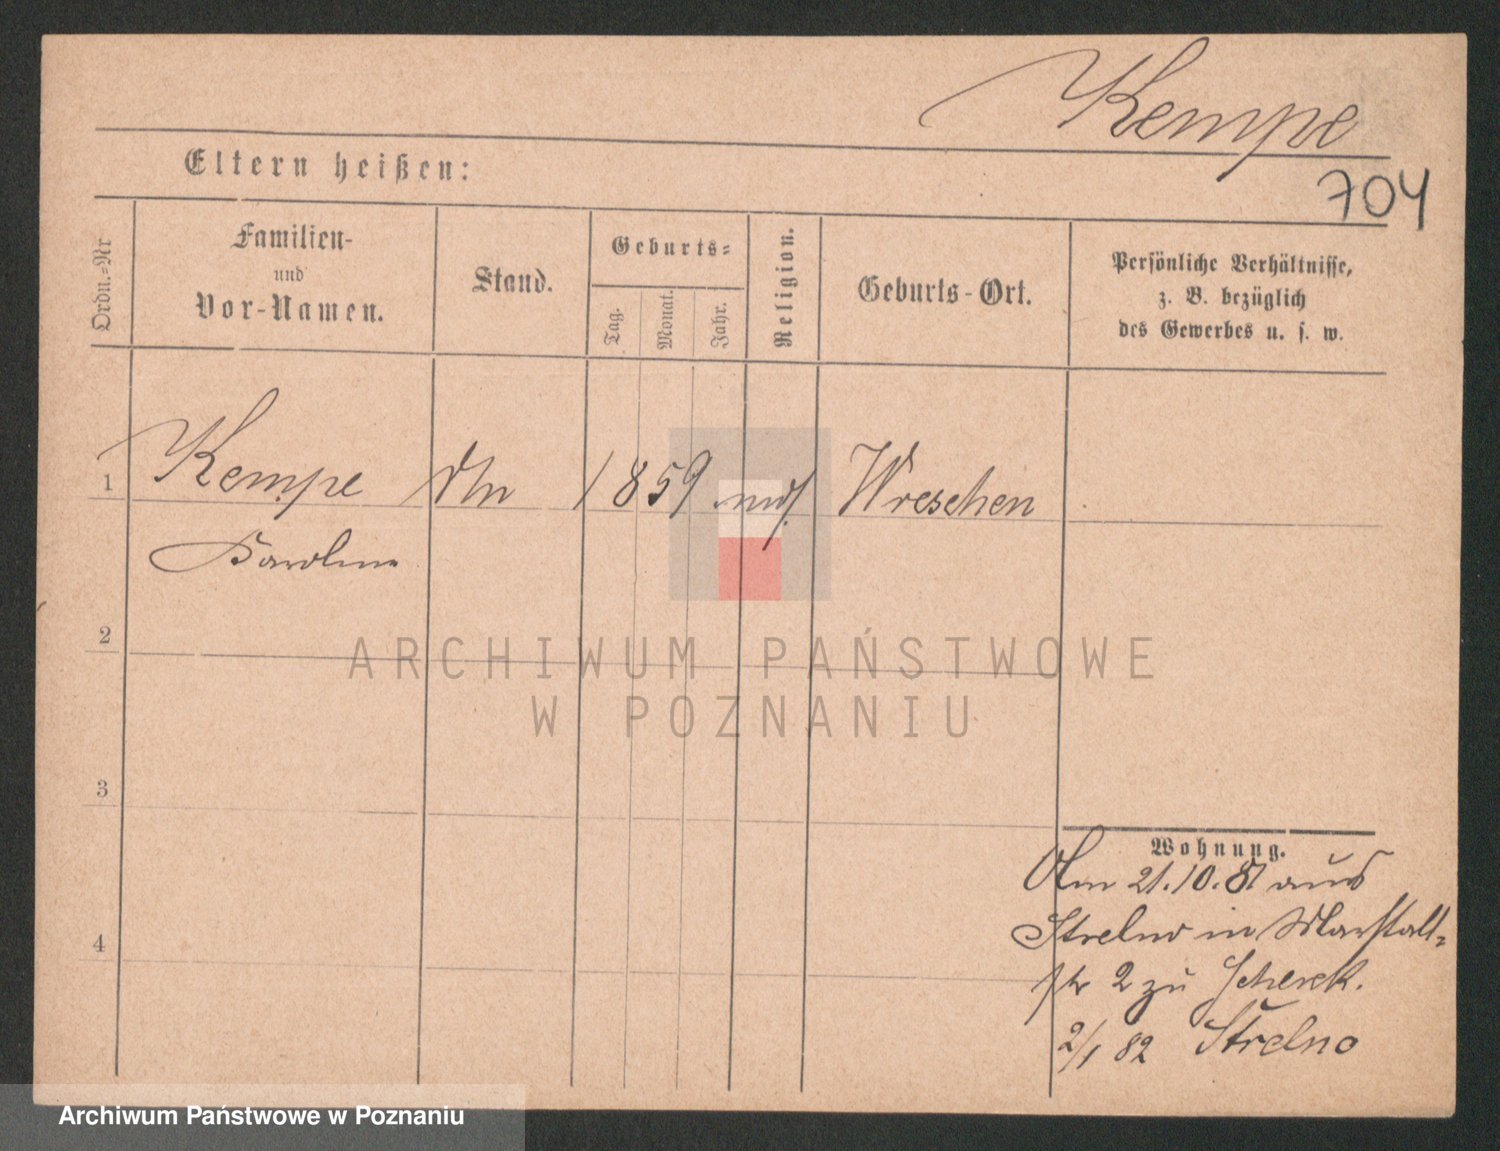 Kempe
704
Eltern heißen:
Ordn.-Nr
Familien-
und
Vor-Namen.
Stand.
Geburts-
Tag.
Monat.
Jahr.
Religion.
Geburts-Ort.
Persönliche Verhältnisse,
z. B. bezüglich
des Gewerbes u. s. w.
1 Kempe 1859 Wreschen
Karoline
2
3
4
Wohnung.
Am 21.10.81 aus
Strelno in Marstall-
str 2 zu Scherek.
2/1 82 Strelno
ARCHIWUM PAŃSTWOWE
W POZNANIU
Archiwum Państwowe w Poznaniu